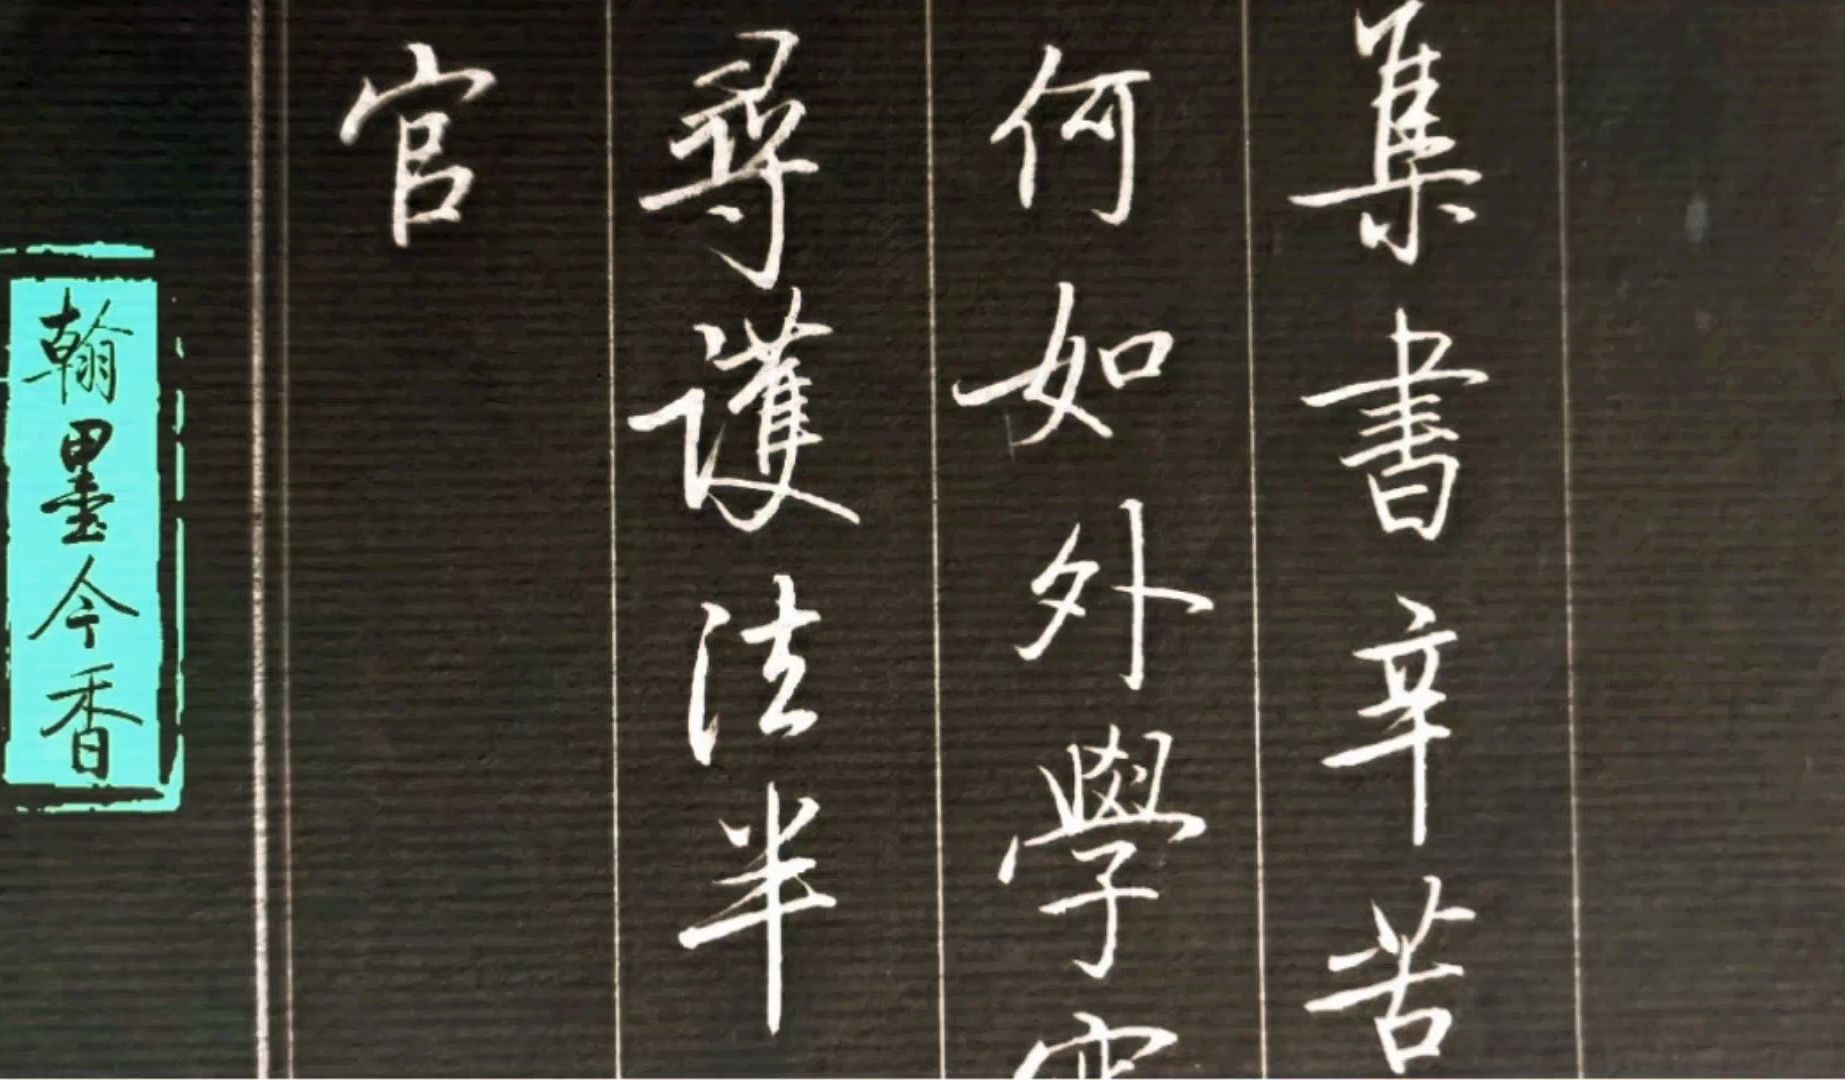 集書辛苦
何如外學
尋護法半
官
翰墨今香